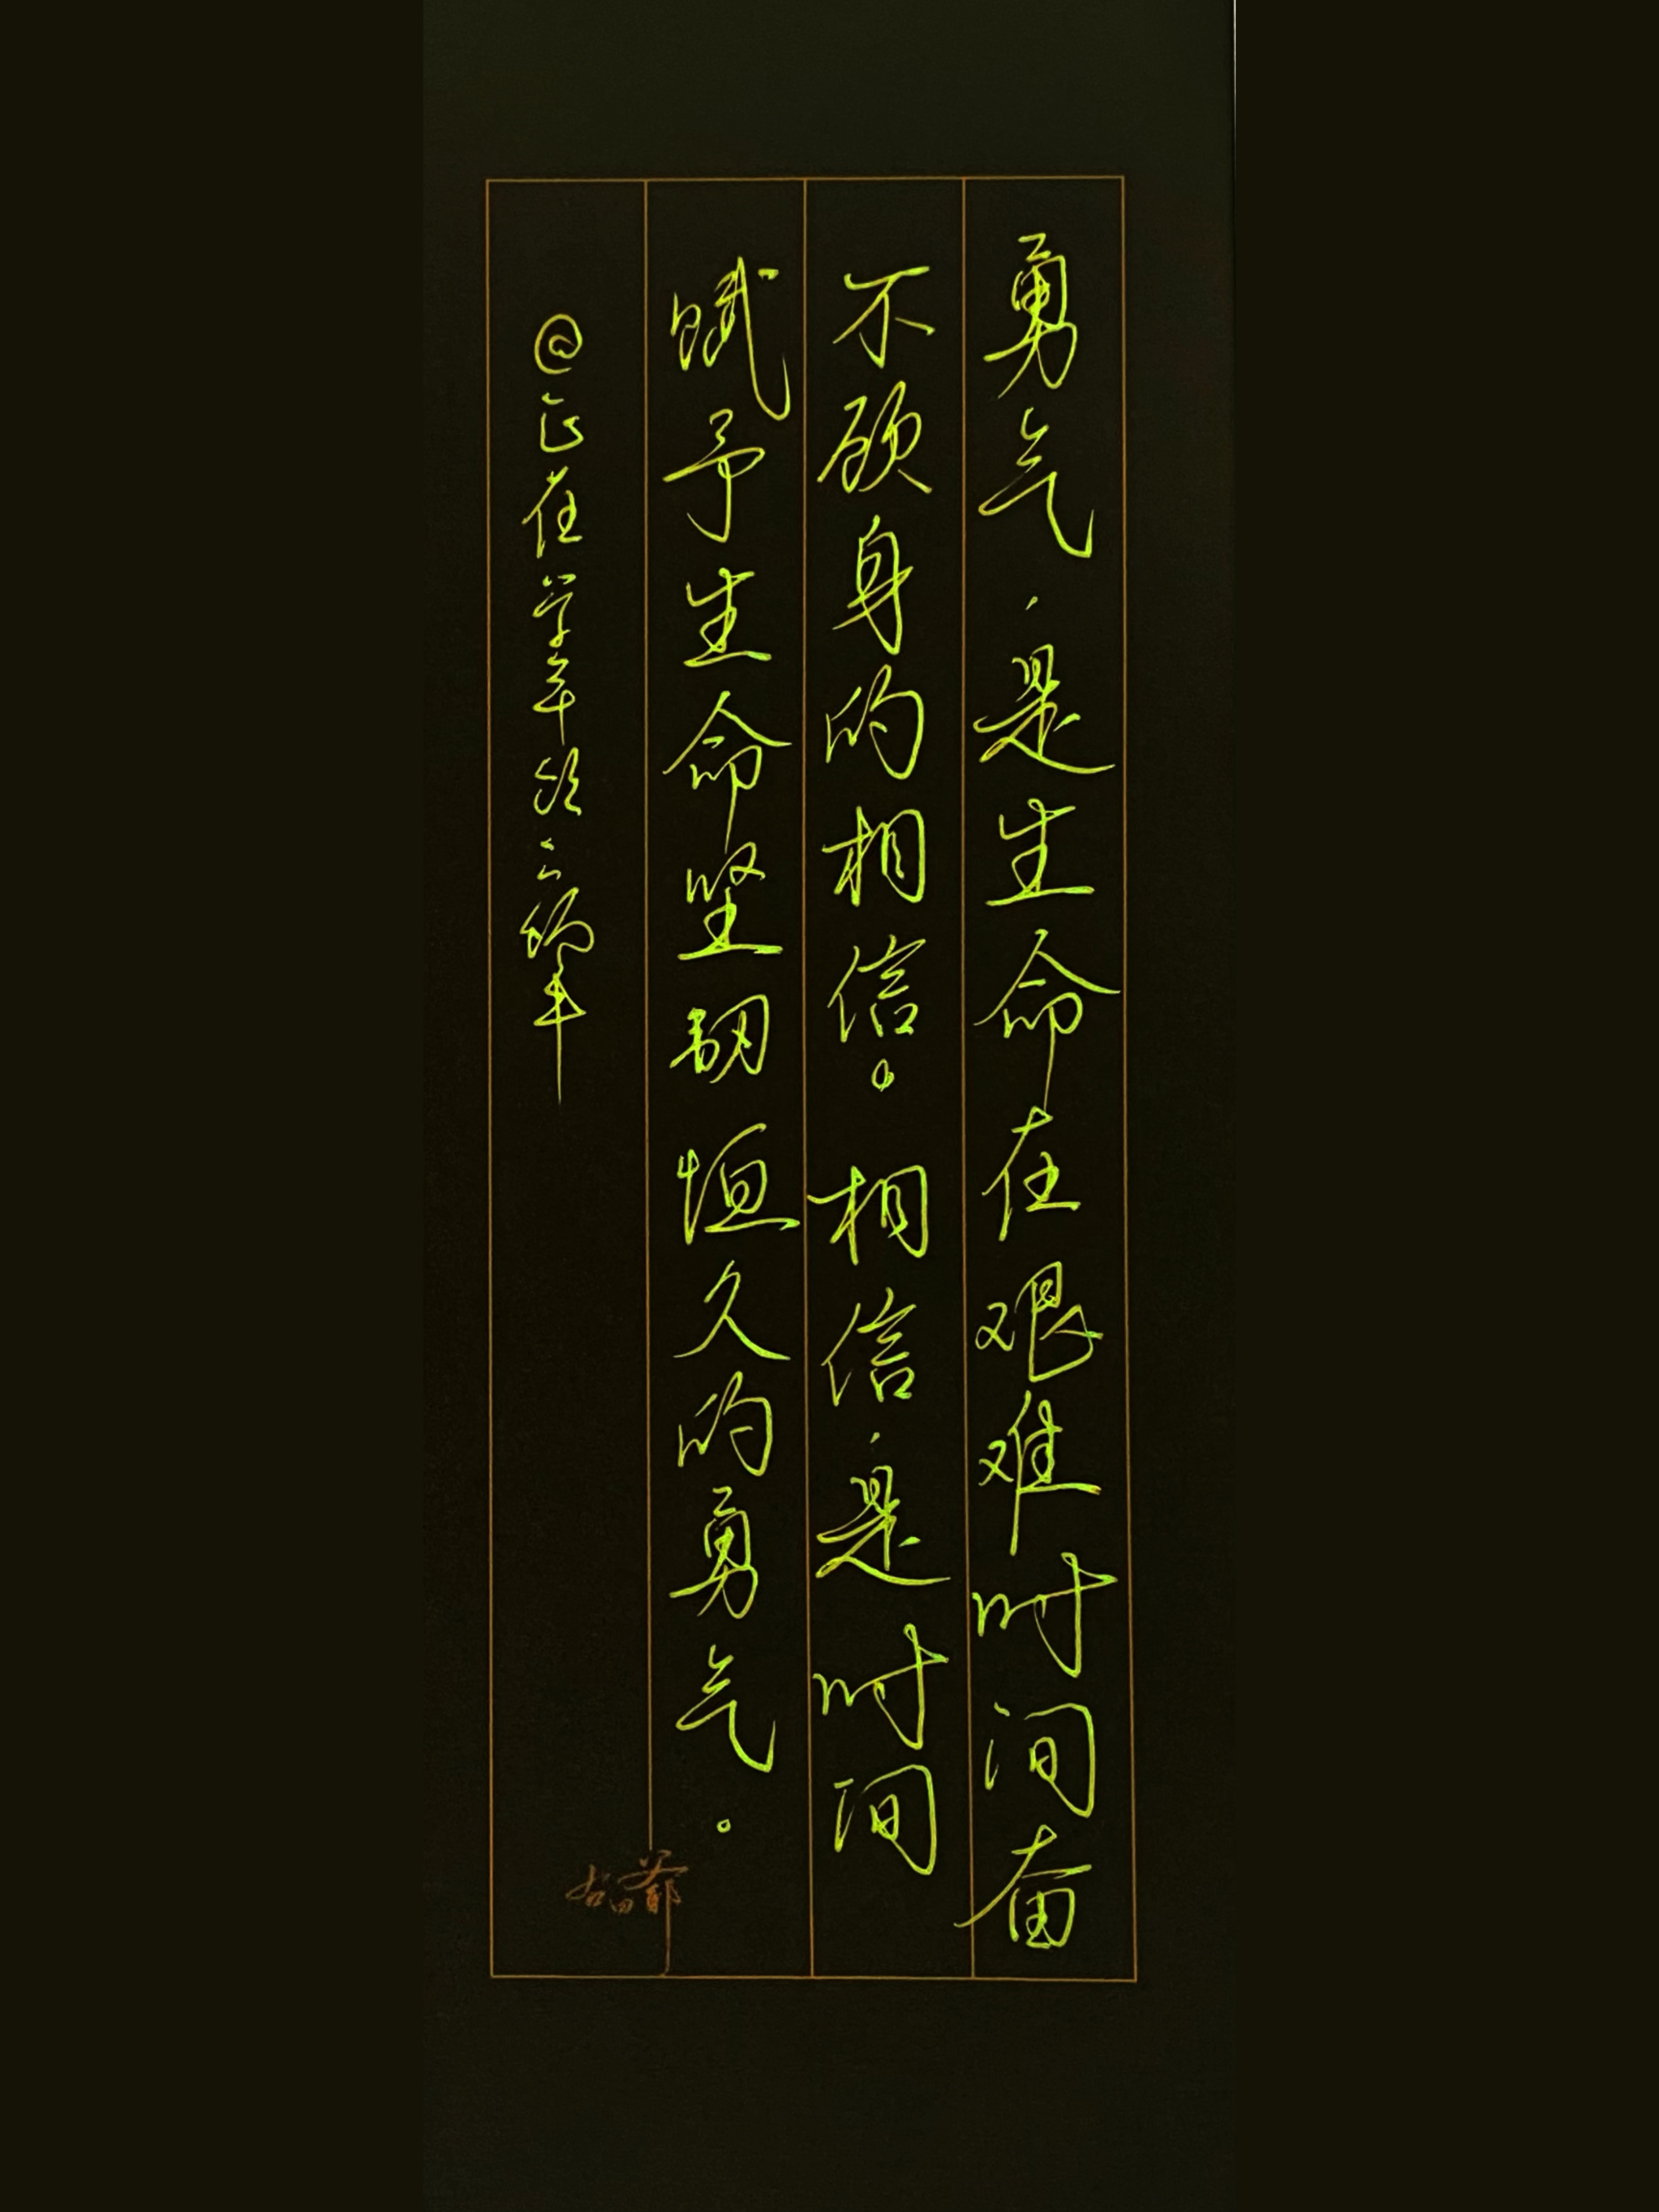 勇气，是生命在艰难时间奋
不顾身的相信。相信，是时间
赋予生命坚韧恒久的勇气。
@正在学年